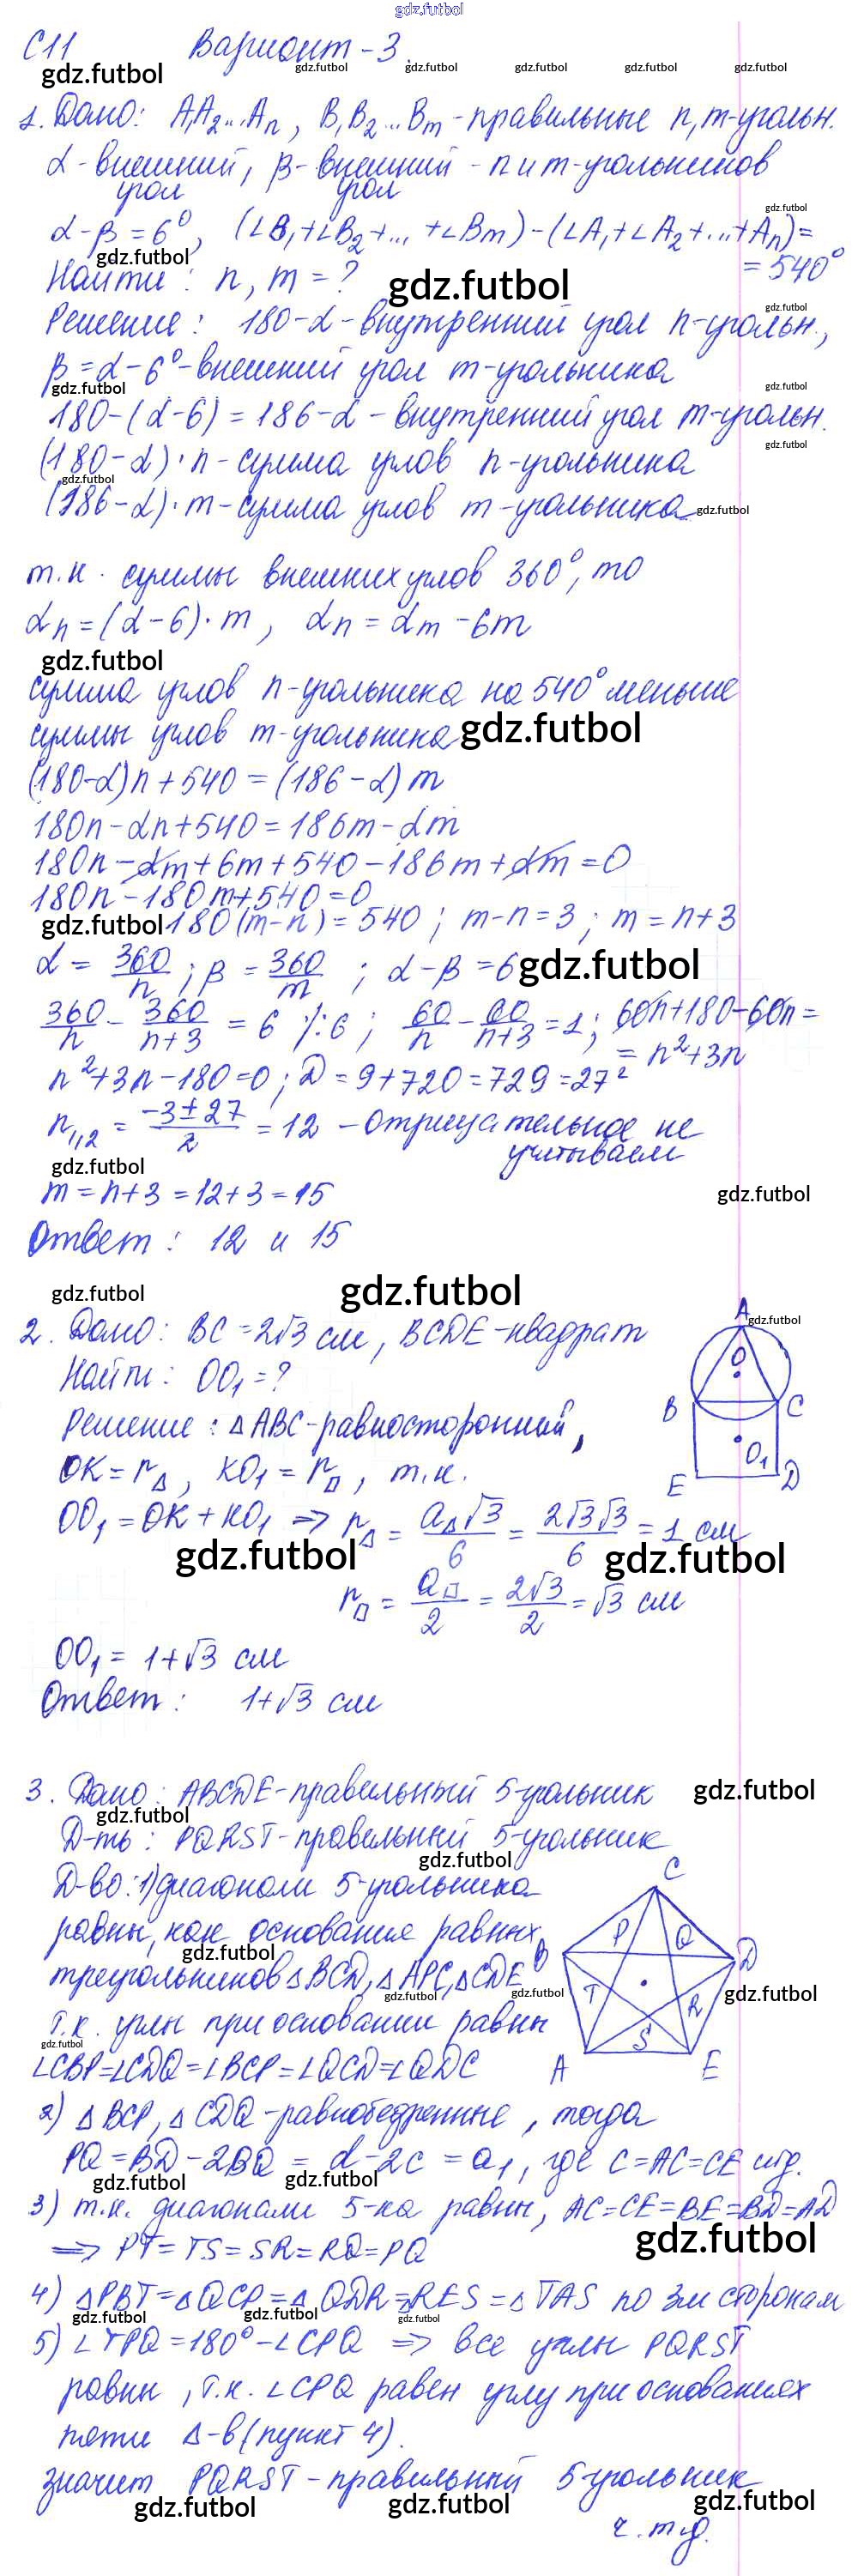 gdz.futbol
С11 Вариант-3.
gdz.futbol gdz.futbol gdz.futbol gdz.futbol gdz.futbol gdz.futbol
1. Дано: A₁A₂...Aₙ, B₁B₂...Bₘ - правильные n, m-угольн.
α - внешний угол, β - внешний угол - n и m-угольников
gdz.futbol
α-β = 6°, (∠B₁+∠B₂+... +∠Bₘ)-(∠A₁+∠A₂+...+Aₙ)=
= 540°
gdz.futbol
Найти: n, m = ? gdz.futbol
gdz.futbol
Решение: 180-α - внутренний угол n-угольн.,
β = α-6° - внешний угол m-угольника
gdz.futbol gdz.futbol
180-(α-6) = 186-α - внутренний угол m-угольн.
gdz.futbol
(180-α)·n - сумма углов n-угольника
gdz.futbol
(186-α)·m - сумма углов m-угольника gdz.futbol
т.к. суммы внешних углов 360°, то
αn = (α-6)·m, αn = αm - 6m
gdz.futbol
сумма углов n-угольника на 540° меньше
суммы углов m-угольника gdz.futbol
(180-α)n + 540 = (186-α)m
180n - αn + 540 = 186m - αm
180n - αm + 6m + 540 - 186m + αm = 0
180n - 180m + 540 = 0
gdz.futbol 180(m-n) = 540; m-n = 3; m = n+3
α = 360/n; β = 360/m; α-β = 6 gdz.futbol
360/n - 360/(n+3) = 6 /:6; 60/n - 60/(n+3) = 1; 60n+180-60n =
= n²+3n
n²+3n-180=0; D = 9+720 = 729 = 27²
n₁,₂ = (-3±27)/2 = 12 - отрицательное не
учитываем
gdz.futbol
m = n+3 = 12+3 = 15 gdz.futbol
Ответ: 12 и 15
gdz.futbol gdz.futbol
A gdz.futbol
2. Дано: BC = 2√3 см, BCDE - квадрат
Найти: OO₁ = ?
O
Решение: △ABC - равносторонний,
B C
OK = r△, KO₁ = r□, т.к.
O₁
E D
OO₁ = OK + KO₁ ⇒ r△ = a△√3/6 = 2√3√3/6 = 1 см
gdz.futbol gdz.futbol
r□ = a□/2 = 2√3/2 = √3 см
OO₁ = 1+√3 см
Ответ: 1+√3 см
3. Дано: ABCDE - правильный 5-угольник gdz.futbol
gdz.futbol
Д-ть: PQRST - правильный 5-угольник
gdz.futbol
Д-во: 1) диагонали 5-угольника
C
равны, как основания равных
gdz.futbol
P Q
B D
треугольников △BCD, △APC, △CDE
gdz.futbol gdz.futbol gdz.futbol
T R
т.к. углы при основании равны
gdz.futbol
S
A E
∠CBP=∠CDQ=∠BCP=∠QCD=∠QDC
2) △BCP, △CDQ - равнобедренные, тогда
PQ = BD - 2BQ = d - 2c = a₁, где c = AC = CE итд.
gdz.futbol gdz.futbol
3) т.к. диагонали 5-ка равны, AC=CE=BE=BD=AD
gdz.futbol
⇒ PT = TS = SR = RQ = PQ
4) △PBT = △QCP = △QDR = △RES = △TAS по 3м сторонам
gdz.futbol gdz.futbol gdz.futbol
5) ∠TPQ = 180° - ∠CPQ ⇒ все углы PQRST
равны, т.к. ∠CPQ равен углу при основаниях
пяти △-в (пункт 4).
значит PQRST - правильный 5-угольник
gdz.futbol gdz.futbol gdz.futbol
ч.т.д.